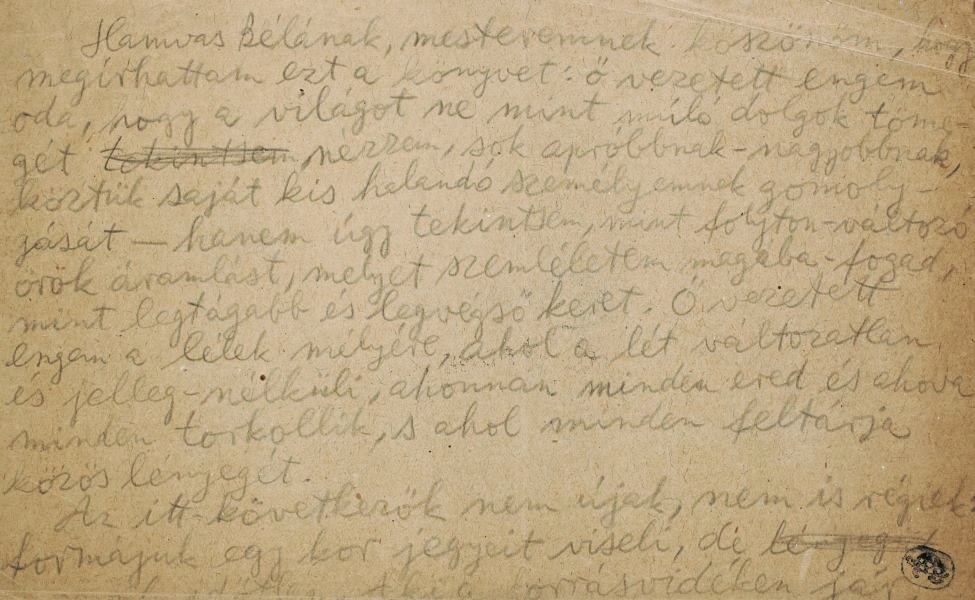 Hamvas Bélának, mesteremnek köszönöm, hogy
megírhattam ezt a könyvet: ő vezetett engem
oda, hogy a világot ne mint múló dolgok töme-
gét tekintsem nézzem, sok apróbbnak-nagyobbnak,
köztük saját kis halandó személyemnek gomoly-
gását — hanem úgy tekintsem, mint folyton-változó
örök áramlást, melyet szemléletem magába-fogad,
mint legtágabb és legvégső keret. Ő vezetett
engem a lélek mélyére, ahol a lét változatlan
és jelleg-nélküli, ahonnan minden ered és ahova
minden torkollik, s ahol minden feltárja
közös lényegét.
Az itt-következők nem újak, nem is régiek
formájuk egy kor jegyeit viseli, de lényegük
Aki a forrásvidéken jár,